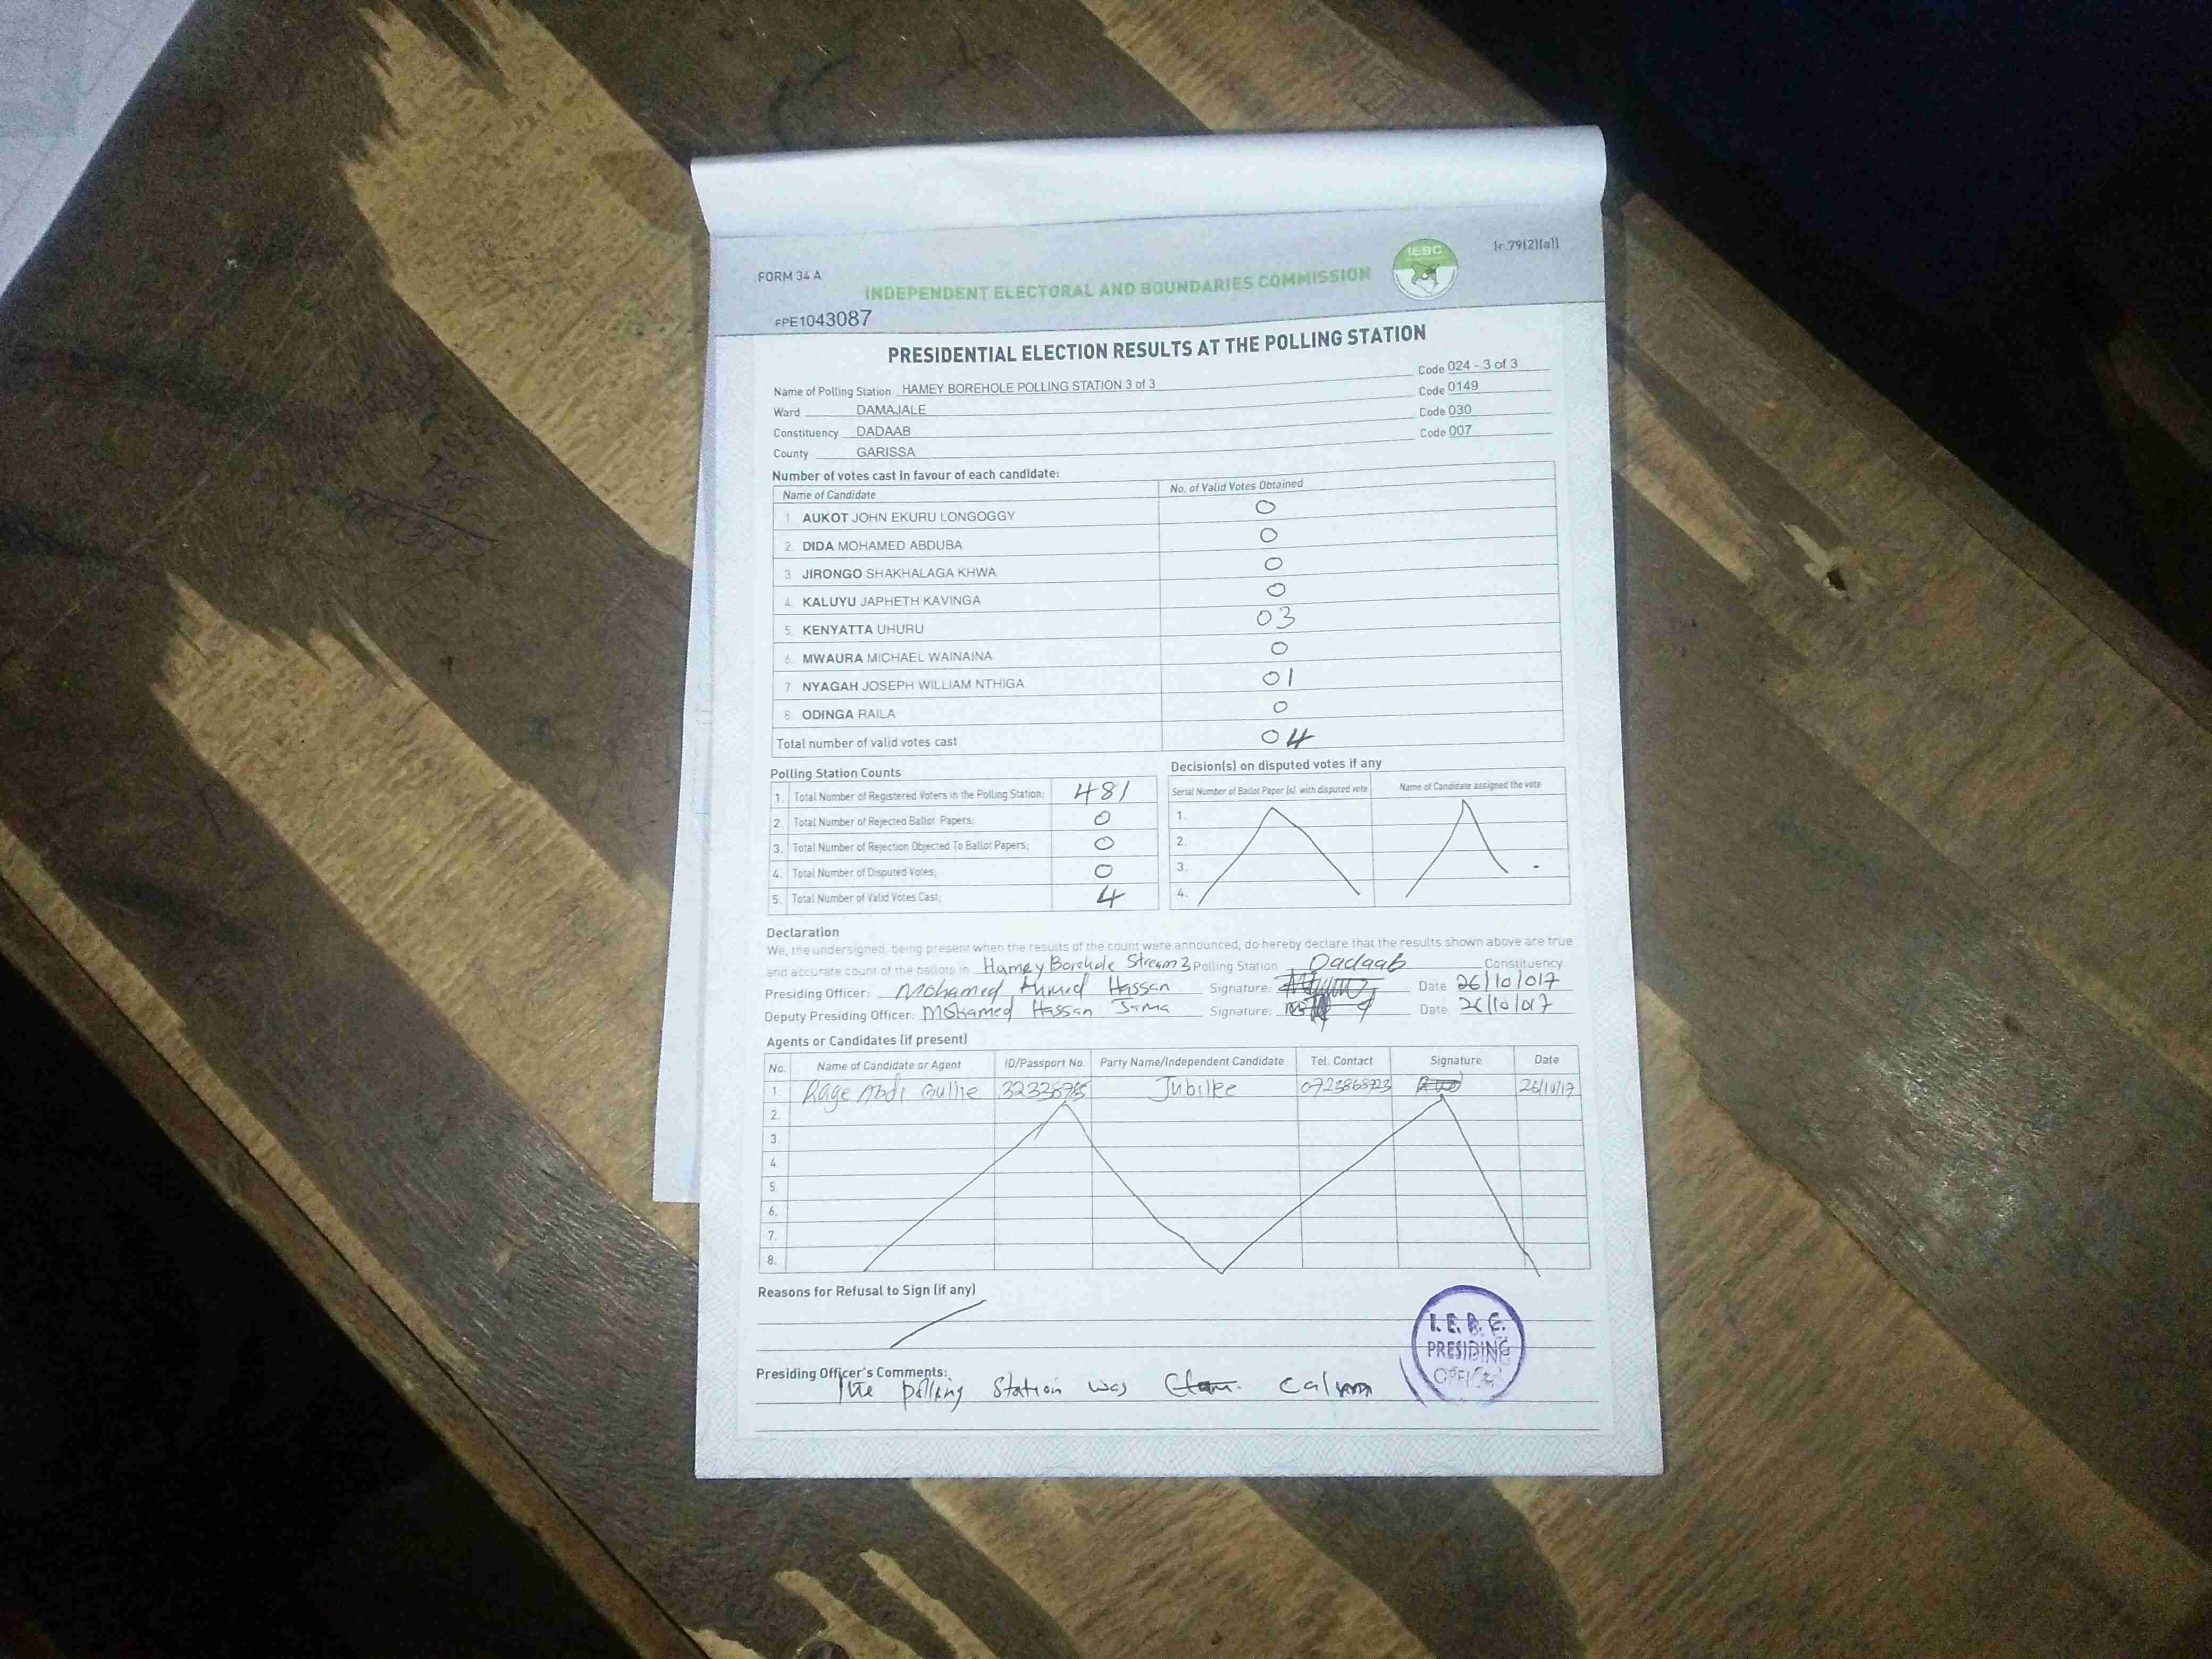 FORM 34 A
INDEPENDENT ELECTORAL AND BOUNDARIES COMMISSION
IEBC
(r.79(2)(a))
FPE1043087
PRESIDENTIAL ELECTION RESULTS AT THE POLLING STATION
Name of Polling Station HAMEY BOREHOLE POLLING STATION 3 of 3 Code 024 - 3 of 3
Ward DAMAJALE Code 0149
Constituency DADAAB Code 030
County GARISSA Code 007
Number of votes cast in favour of each candidate:
Name of Candidate No. of Valid Votes Obtained
1. AUKOT JOHN EKURU LONGOGGY 0
2. DIDA MOHAMED ABDUBA 0
3. JIRONGO SHAKHALAGA KHWA 0
4. KALUYU JAPHETH KAVINGA 0
5. KENYATTA UHURU 03
6. MWAURA MICHAEL WAINAINA 0
7. NYAGAH JOSEPH WILLIAM NTHIGA 01
8. ODINGA RAILA 0
Total number of valid votes cast 04
Polling Station Counts
1. Total Number of Registered Voters in the Polling Station; 481
2. Total Number of Rejected Ballot Papers; 0
3. Total Number of Rejection Objected To Ballot Papers; 0
4. Total Number of Disputed Votes; 0
5. Total Number of Valid Votes Cast; 4
Decision(s) on disputed votes if any
Serial Number of Ballot Paper (s) with disputed vote Name of Candidate assigned the vote
1.
2.
3.
4.
Declaration
We, the undersigned, being present when the results of the count were announced, do hereby declare that the results shown above are true
and accurate count of the ballots in Hamey Borehole Stream 3 Polling Station Dadaab Constituency
Presiding Officer: Mohamed Ahmed Hassan Signature: Date 26/10/017
Deputy Presiding Officer: Mohamed Hassan Jama Signature: Date 26/10/017
Agents or Candidates (if present)
No. Name of Candidate or Agent ID/Passport No. Party Name/Independent Candidate Tel. Contact Signature Date
1. Rage Abdi Gullie Jubilee 26/10/17
2.
3.
4.
5.
6.
7.
8.
Reasons for Refusal to Sign (if any)
I.E.B.C.
PRESIDING
OFFICER
Presiding Officer's Comments:
The polling Station was calm